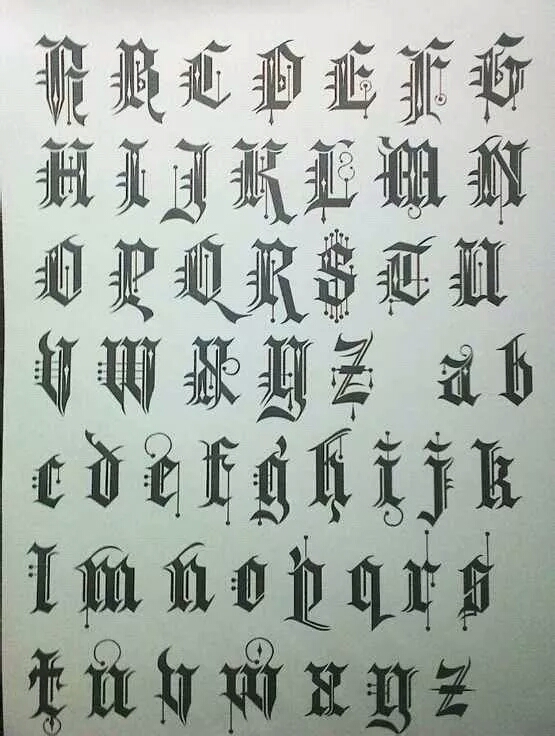 A B C D E F G
H I J K L M N
O P Q R S T U
V W X Y Z a b
c d e f g h i j k
l m n o p q r s
t u v w x y z